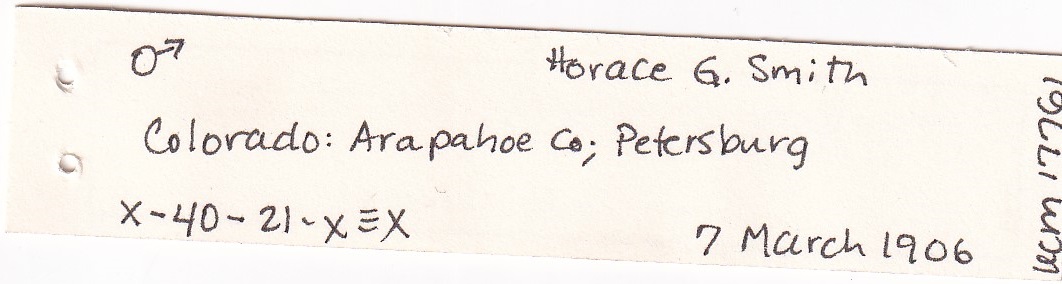 ♂ Horace G. Smith
Colorado: Arapahoe Co; Petersburg
X-40-21-X≡X 7 March 1906